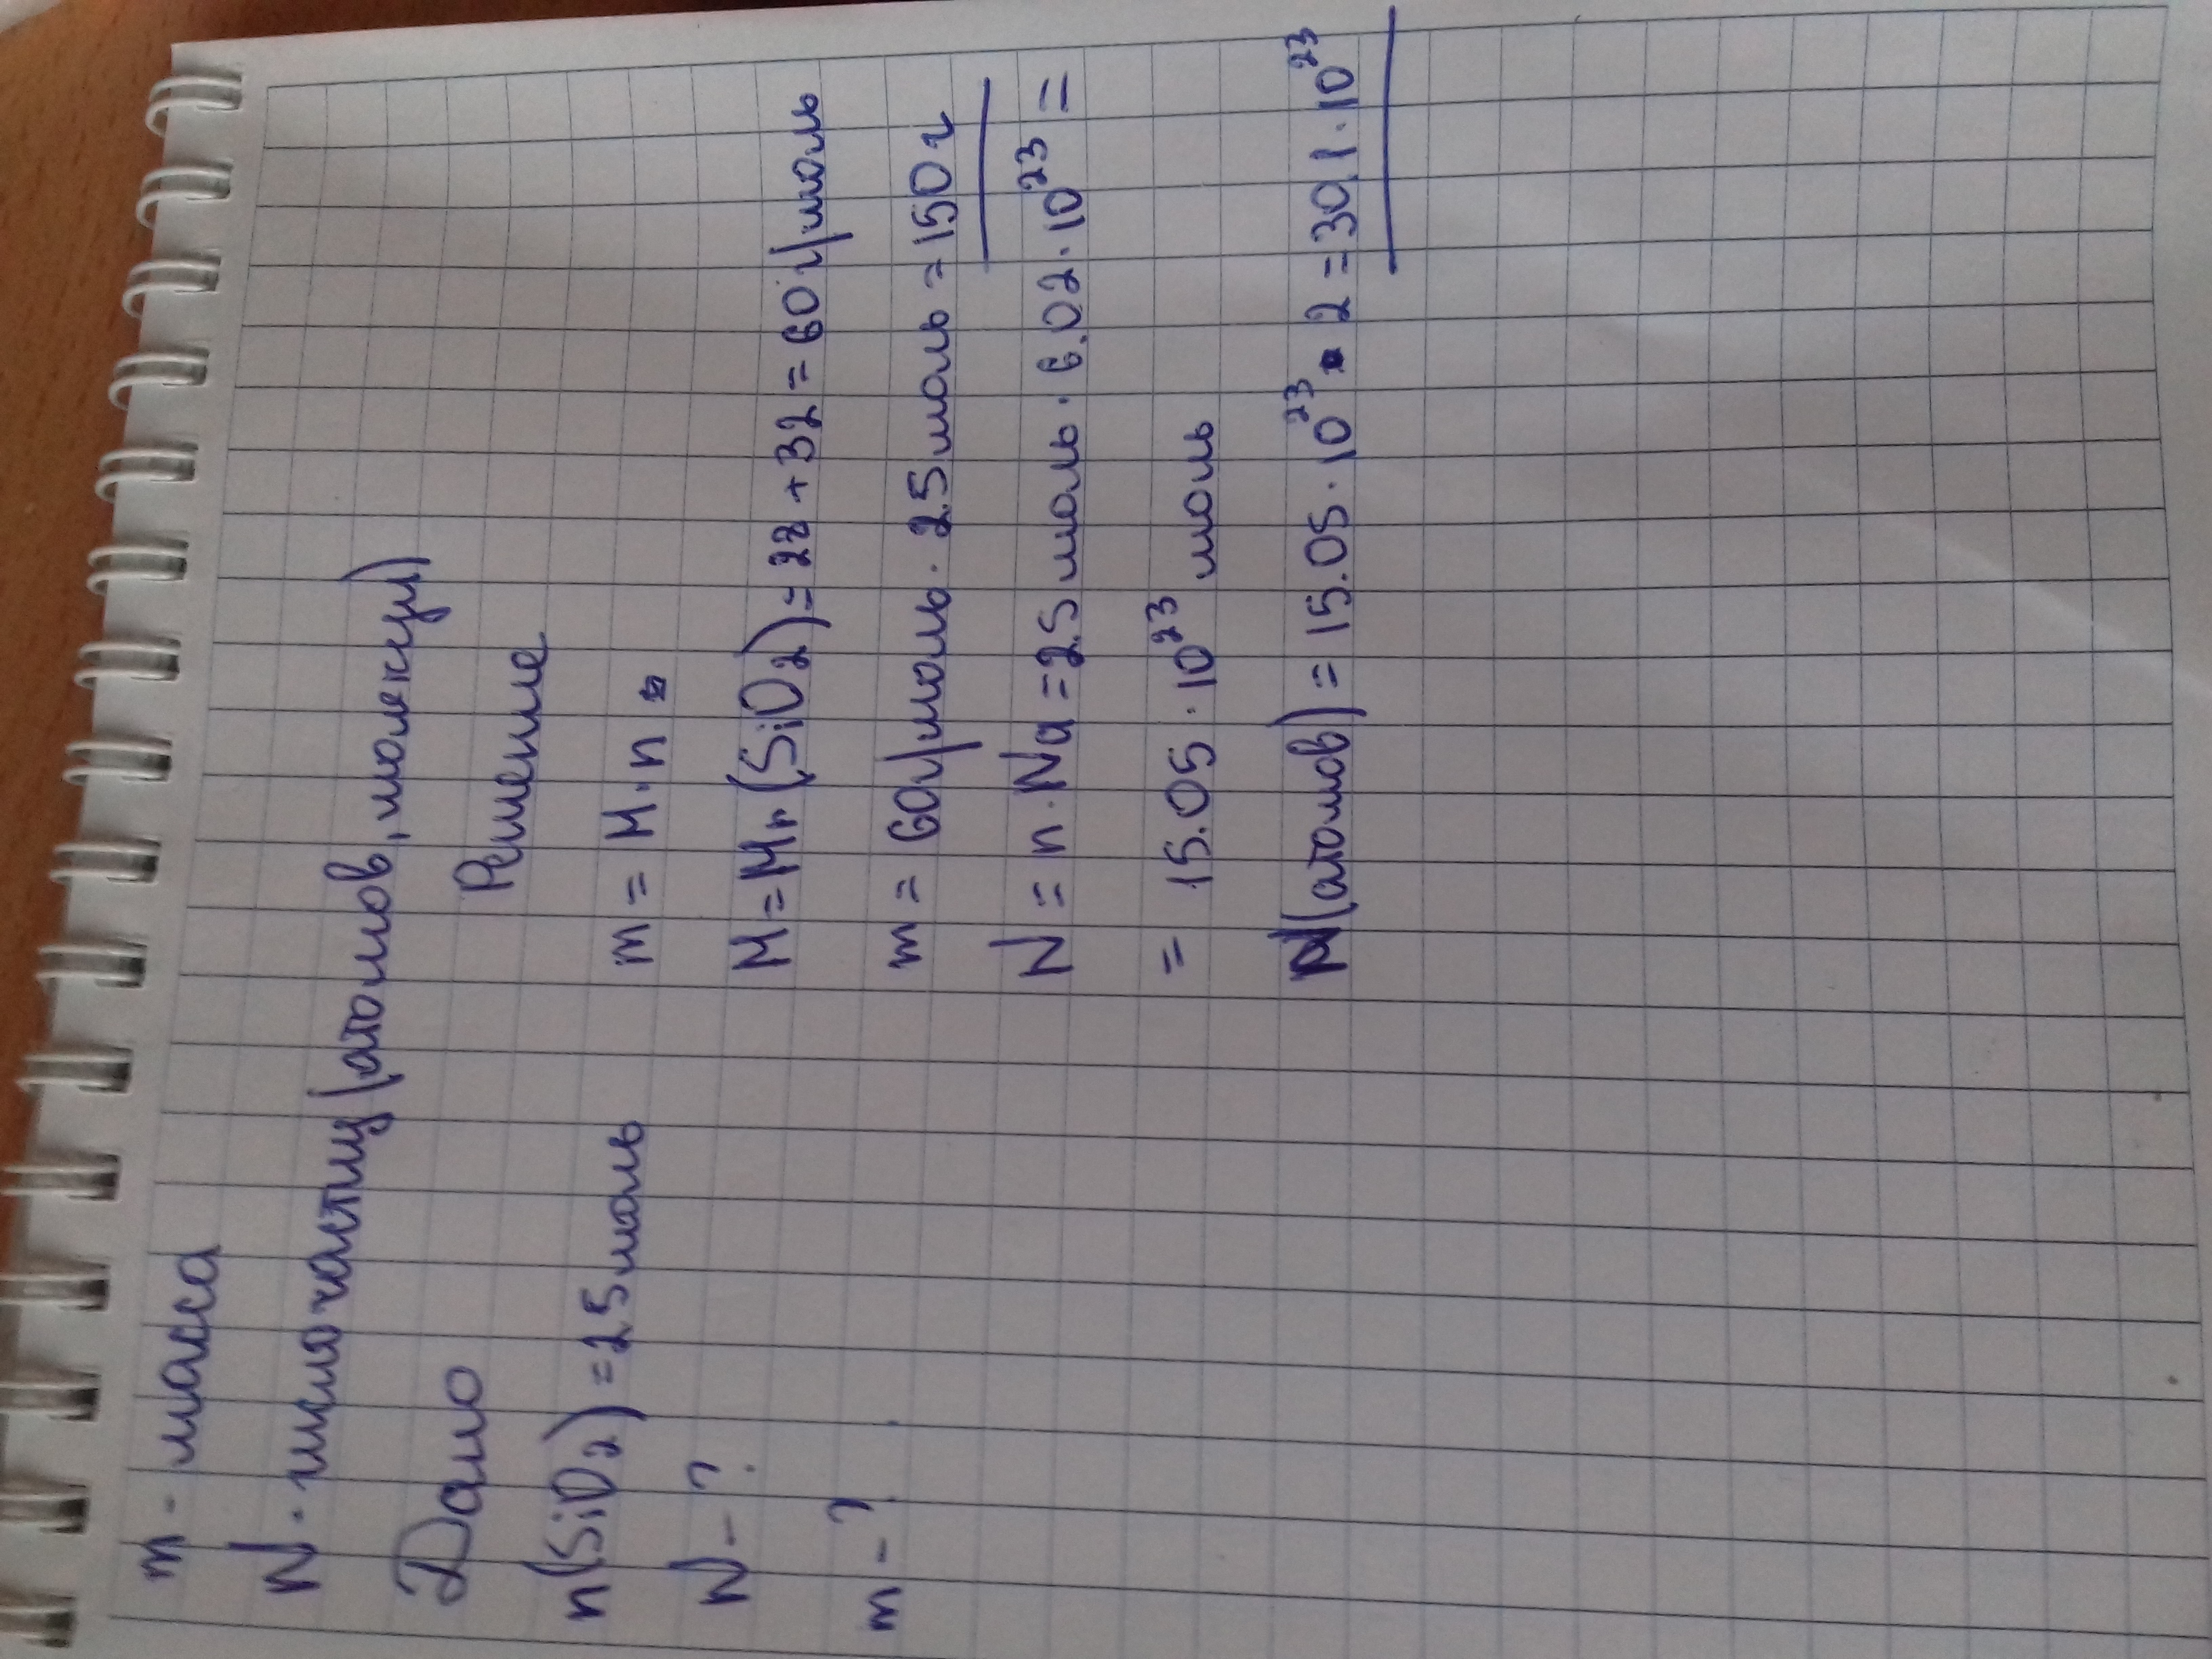 m - масса
N - число частиц (атомов, молекул)
Дано
Решение
n(SiO₂) = 2.5 моль
N - ?
m - ?
m = M · n
M = Mr (SiO₂) = 28 + 32 = 60 г/моль
m = 60 г/моль · 2.5 моль = 150 г
N = n · Na = 2.5 моль · 6.02 · 10²³ =
= 15.05 · 10²³ моль
N(атомов) = 15.05 · 10²³ · 2 = 30,1 · 10²³